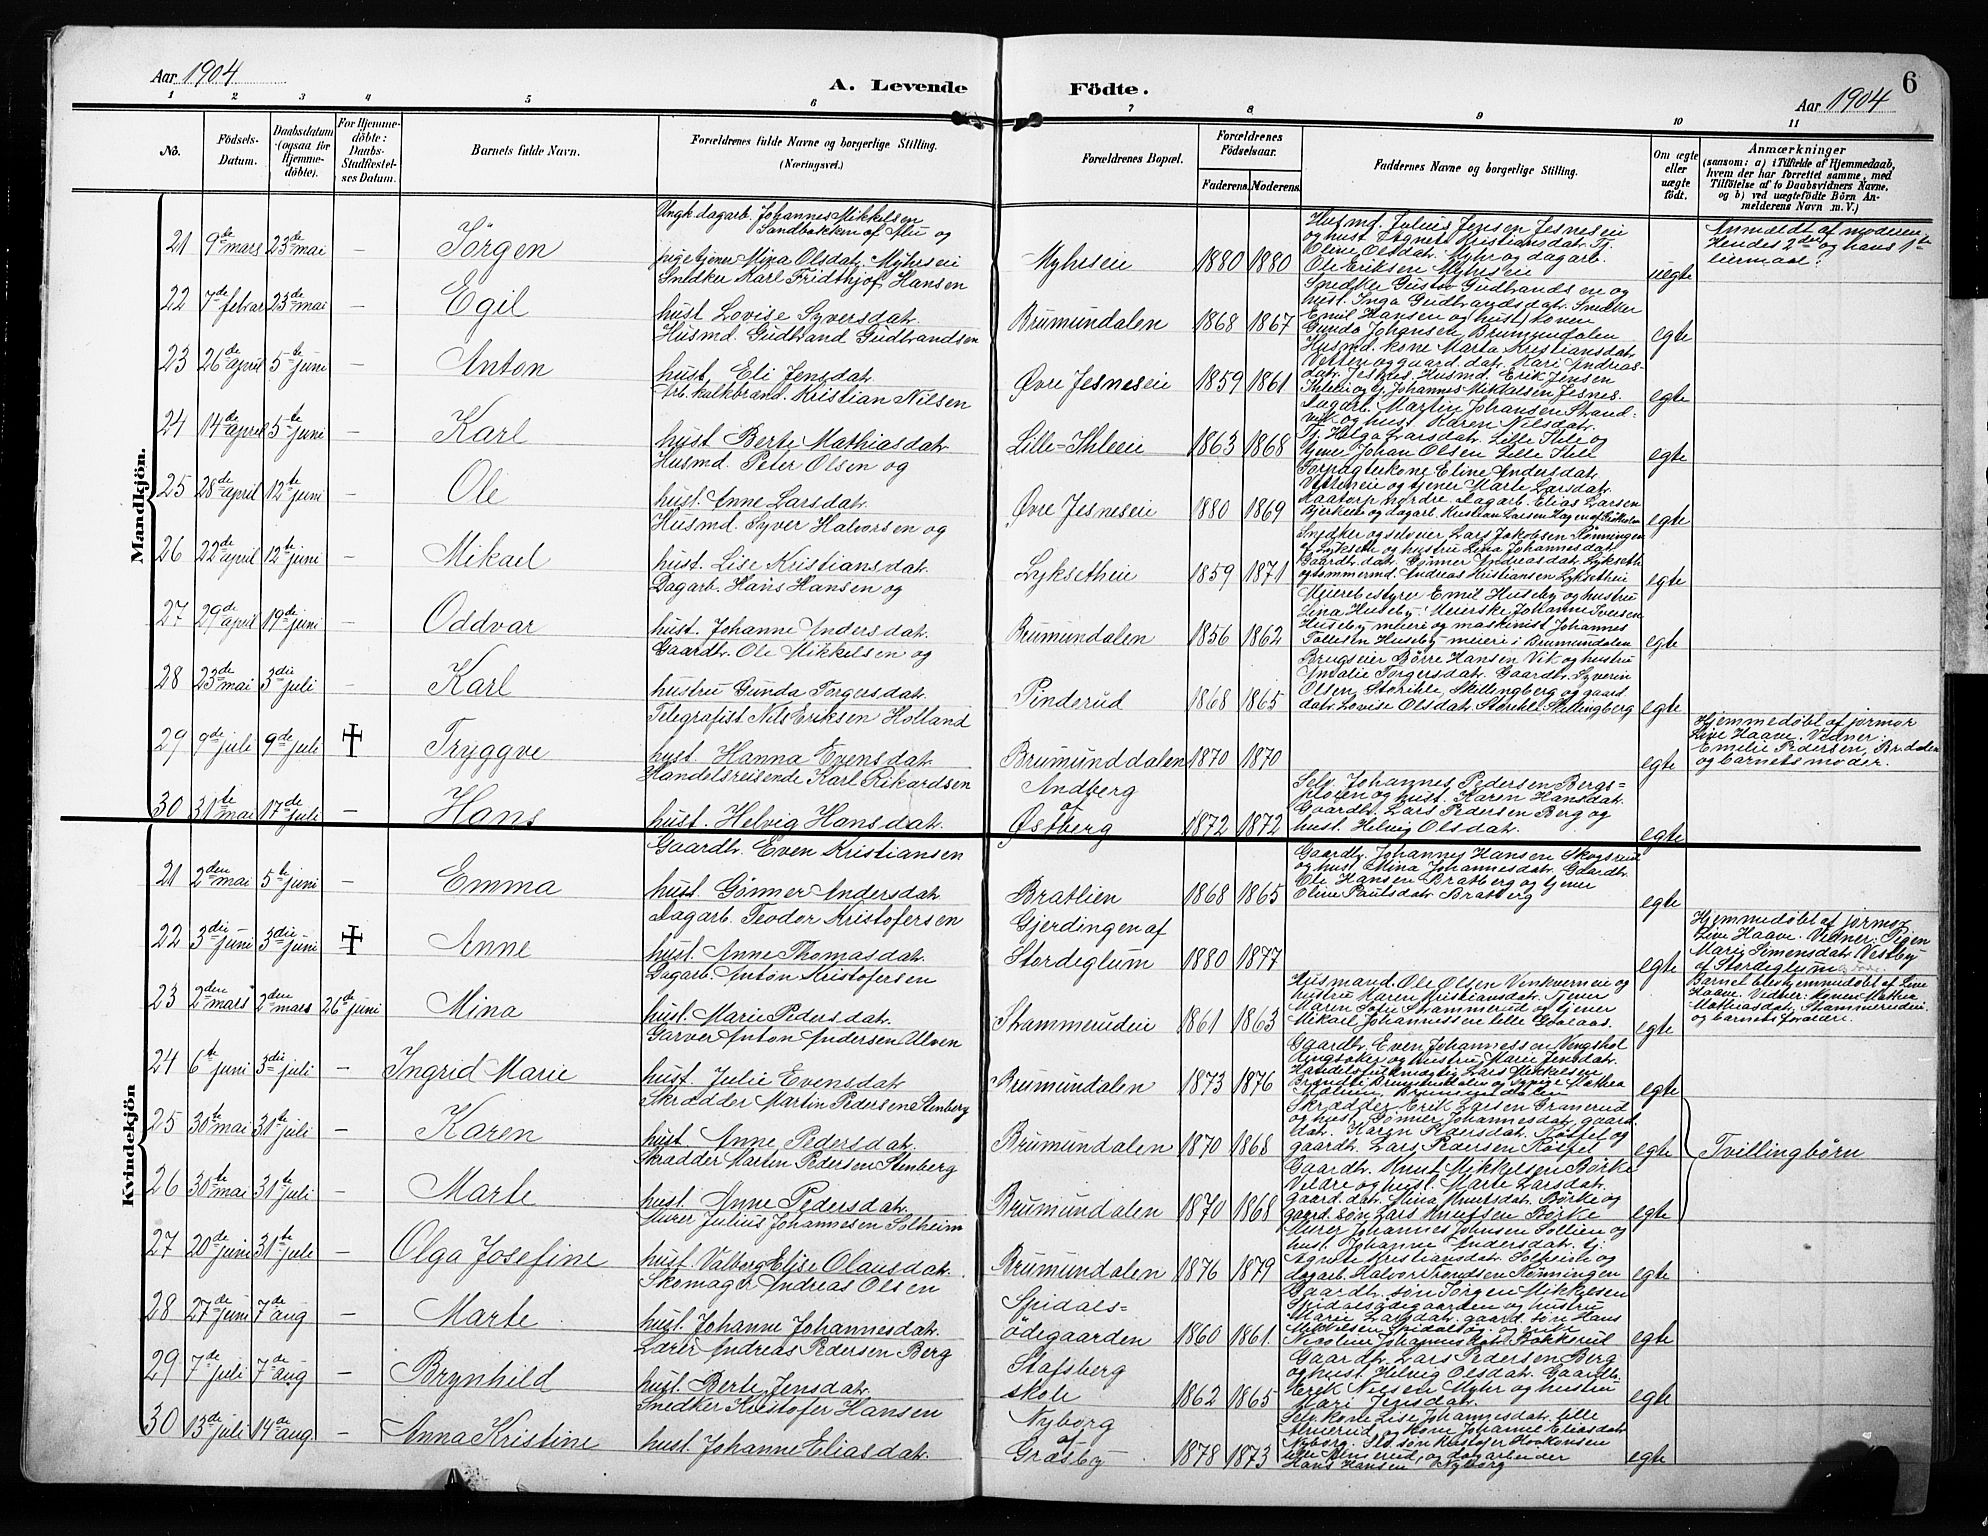 Aar 1904
A. Levende Födte.
6
Aar 1904
1 2 3 4 5 6 7 8 9 10 11
No.
Födsels-Datum.
Daabsdatum (ogsaa for Hjemmedöbte).
For Hjemmedöbte: Daabs-Stadfæstelses Datum.
Barnets fulde Navn.
Forældrenes fulde Navne og borgerlige Stilling. (Næringsvei.)
Forældrenes Bopæl.
Forældrenes Födselsaar.
Faderens. Moderens.
Faddernes Navne og borgerlige Stilling.
Om ægte eller uægte födt.
Anmærkninger
(saasom: a) i Tilfælde af Hjemmedaab, hvem der har forrettet samme, med Tilföielse af to Daabsvidners Navne. og b) ved uægtefödte Börn Anmelderens Navn m.V.)
Mandkjön.
21 9de mars 23de mai – Jörgen
Ungk. dagarb. Johannes Mikkelsen
Sandbakken af Mu og
pige tjener Mina Olsdat. Myhreseie
Myhreseie 1880 1880
Husmd. Julius Jensen Jesneseie
og hust. Agnete Kristiansdat. Tj.
Oline Olsdat. Myhr og dagarb.
Ole Eriksen Myhreseie
uegte
Anmeldt af moderen.
Hendes 2det og hans 1ste
leiermaal.
22 7de februar 23de mai – Egil
Snedker Karl Fridthjof Hansen
hust. Lovise Syversdat.
Brumundalen 1868 1867
Snedker Gustav Gudbrandsen og
hust. Inga Gudbrandsdat. Snedker
Emil Hansen og (hust.) konen
Gunda Johansen, Brumundalen
egte
23 26de april 5te juni – Anton
Husmd. Gudbrand Gudbrandsen
hust. Eli Jensdat.
Øvre Jesneseie 1859 1861
Husmd. kone Marta Kristiansdat.
Vetten og gaard. dat. Kari Andreas-
dat. Jesnes. Husmd. Erik Jensen
Ihleeie og G. Johannes Mikkelsen Jesnes.
egte
24 14de april 5te juni – Karl
Arb. kalkbrænd. Kristian Nilsen
hust. Berte Mathiasdat.
Lille-Ihleeie 1863 1868
Dagarb. Martin Johansen Strand-
vik og hust. Karen Nilsdat.
Tj. Helga Larsdat. Lille Ihle og
tjener Johan Olsen Lille Ihle
egte
25 28de april 12te juni – Ole
Husmd. Peter Olsen og
hust. Anne Larsdat.
Øvre Jesneseie 1880 1869
Forpagterkone Eline Andersdat.
Vetteneie og tjener Marte Larsdat.
Kaatorp nordre. Dagarb. Elias Larsen
Bjerkeeie og dagarb. Kristian Larsen Hagen af
egte
26 22de april 12te juni – Mikael
Husmd. Syver Halvorsen og
hust. Lise Kristiansdat.
Lyksetheie 1859 1871
Snedker og selveier Lars Jakobsen Rønningen
af Lykseth og hustru Lina Johannesdat.
Gaardb. dat. Ginner Andreasdat. Lykseth
og tømmermd. Andreas Kristiansen Lyksetheie
egte
27 29de april 19de juni – Oddvar
Dagarb. Hans Hansen og
hust. Johanne Andersdat.
Brumundalen 1856 1862
Meieribestyrer Emil Huseby og hustru
Lina Huseby. Meierske Johanne Iversen
Huseby meieri og maskinist Johannes
Tollefsen Huseby meieri i Brumundalen
egte
28 23de mai 3die juli – Karl
Gaardb. Ole Mikkelsen og
hustru Gunda Torgersdat.
Pinderud 1868 1865
Brugseier Børre Hansen Vik og hustru
Andalie Torgersdat. Gaardb. Syverin
Olsen Storihle, Skillingberg og gaard.
dat. Lovise Olsdat. Storihle-Skillingberg
egte
29 9de juli 9de juli † Tryggve
Telegrafist Nils Eriksen Holland
hust. Hanna Evensdat.
Brumunddalen 1870 1870
egte
Hjemmedøbt af jormor
Live Haave. Vidner:
Emelie Pedersen, Brdalen
og barnets moder.
30 31te mai 17de juli – Hans
Handelsreisende Karl Rikardsen
hust. Helvig Hansdat.
Andberg
af
Østberg 1872 1872
Selv. Johannes Pedersen Bergs-
ploien og hust. Karen Hansdat.
Gaardb. Lars Pedersen Berg og
hust. Helvig Olsdat.
egte
Kvindekjön
21 2den mai 5te juni – Emma
Gaardb. Even Kristiansen
hust. Ginner Andersdat.
Bratlien 1868 1865
Gaardb. Johannes Hansen Skogsrud
og hust. Mina Johannesdat. Gaardb.
Ole Hansen Bratberg og tjener
Oline Paulsdat. Bratberg
egte
22 3die juni 3die juni † Anne
Dagarb. Teodor Kristofersen
hust. Anne Thomasdat.
Gjerdingen af
Stordeglum 1880 1877
egte
Hjemmedøbt af jormor
Live Haave. Vidner: Pigen
Marie Simensdat. Vestby
af Stordeglum
23 2den mars 2den mars 26de juni Mina
Dagarb. Anton Kristofersen
hust. Marie Pedersdat.
Stammerudeie 1861 1863
Husmand. Ole Olsen Venkverneie og
hustru Maren Kristiansdat. Tjener
Maren Sofie Stammerud og tjener
Mikael Johannessen lille Gaalaas.
egte
Barnet blev hjemmedøbt af Live
Haave. Vidner: Konen Mathea
Mathiasdat. Stammerudeie
og barnets forældre.
24 6te juni 3die juli – Ingrid Marie
Garver Anton Andersen Ulven
hust. Julie Evensdat.
Brumundalen 1873 1876
Gaardb. Even Johannessen Vengskol
Ringsaker og hustru Marie Jensdat.
Handelsfuldmægtig Lars Mikkelsen
Brændte Brumundalen og sypige Mathea
egte
25 30te mai 31te juli – Karen
Skrædder Martin Pedersen Stenberg
hust. Anne Pedersdat.
Brumundalen 1870 1868
Skrædder Erik Larsen Granerud
og hust. Ginner Johannesdat. gaard.
dat. Karen Pedersdat. Kosfet og
gaardb. Lars Pedersen Kosfet
egte
Tvillingbörn
26 30te mai 31te juli – Marte
Skrædder Martin Pedersen Stenberg
hust. Anne Pedersdat.
Brumundalen 1870 1868
Gaardb. Knut Mikkelsen Børke
Veldre og hust. Marte Larsdat.
gaard. dat. Mina Knutsdat. Børke og
gaard. søn Lars Knutsen Børke
egte
27 20de juni 31te juli – Olga Josefine
Murer Julius Johannesen Solheim
hust. Valborg Elise Olausdat.
Brumundalen 1876 1879
Murer Johannes Johnsen Sollien og
hust. Johanne Andersdat. tj.
Agnete Kristiansdat. Solheim og
dagarb. Halvor Trondsen Rønningen
egte
28 27de juni 7de aug – Marte
Skomager Andreas Olsen
hust. Johanne Johannesdat.
Spidals-
ödegaarden 1860 1861.
Gaardb. søn Jørgen Mikkelsen
Spidalsødegaarden og hustru
Marie Larsdat. gaard. søn Hans
Mikkelsen Spidal og
Nicoline Johannesdat. Bøkkerud
egte
29 7de juli 7de aug – Brynhild
Lærer Andreas Pedersen Berg
hust. Berte Jensdat.
Stafsberg
skole 1862 1865
Gaardb. Lars Pedersen Berg
og hust. Helvig Olsdat. Gaardb.
Erik Nilsen Myhr og hustru
Mari Jensdat.
egte
30 13de juli 14de aug – Anna Kristine
Snedker Kristofer Hansen
hust. Johanne Eliasdat.
Nyborg
af
Græsby 1878 1873
Selv. kone Lise Johannesdat. lille
Almerud og kone Johanne Eliasdat.
Nyborg. Selv. søn Kristofer Haakonsen
lille Almerud, og dagarbeider
Hans Hansen Nyborg
egte